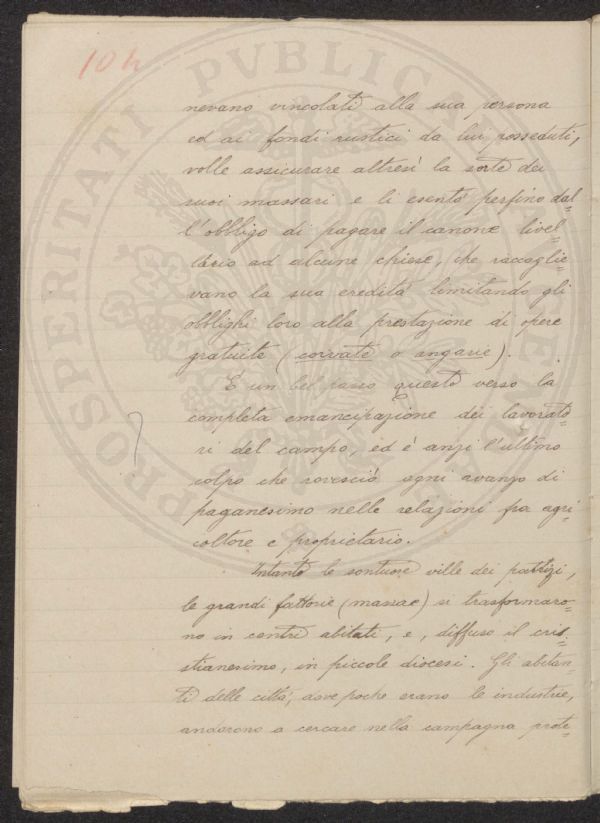 104
nevano vincolati alla sua persona
ed ai fondi rustici da lui posseduti,
volle assicurare altresì la sorte dei
suoi massari e li esentò perfino dal-
l'obbligo di pagare il canone livel-
lario ad alcune chiese, che raccoglie-
vano la sua eredità limitando gli
obblighi loro alla prestazione di opere
gratuite (corvate o angarie).
È un bel passo questo verso la
completa emancipazione dei lavorato-
ri del campo, ed è anzi l'ultimo
colpo che rovesciò ogni avanzo di
paganesimo nelle relazioni fra agri-
coltore e proprietario.
Intanto le sontuose ville dei patrizi,
le grandi fattorie (massae) si trasformaro-
no in centri abitati, e, diffuso il cri-
stianesimo, in piccole diocesi. Gli abitan-
ti delle città, dove poche erano le industrie,
andarono a cercare nella campagna prote-
PROSPERITATI PVBLICAE